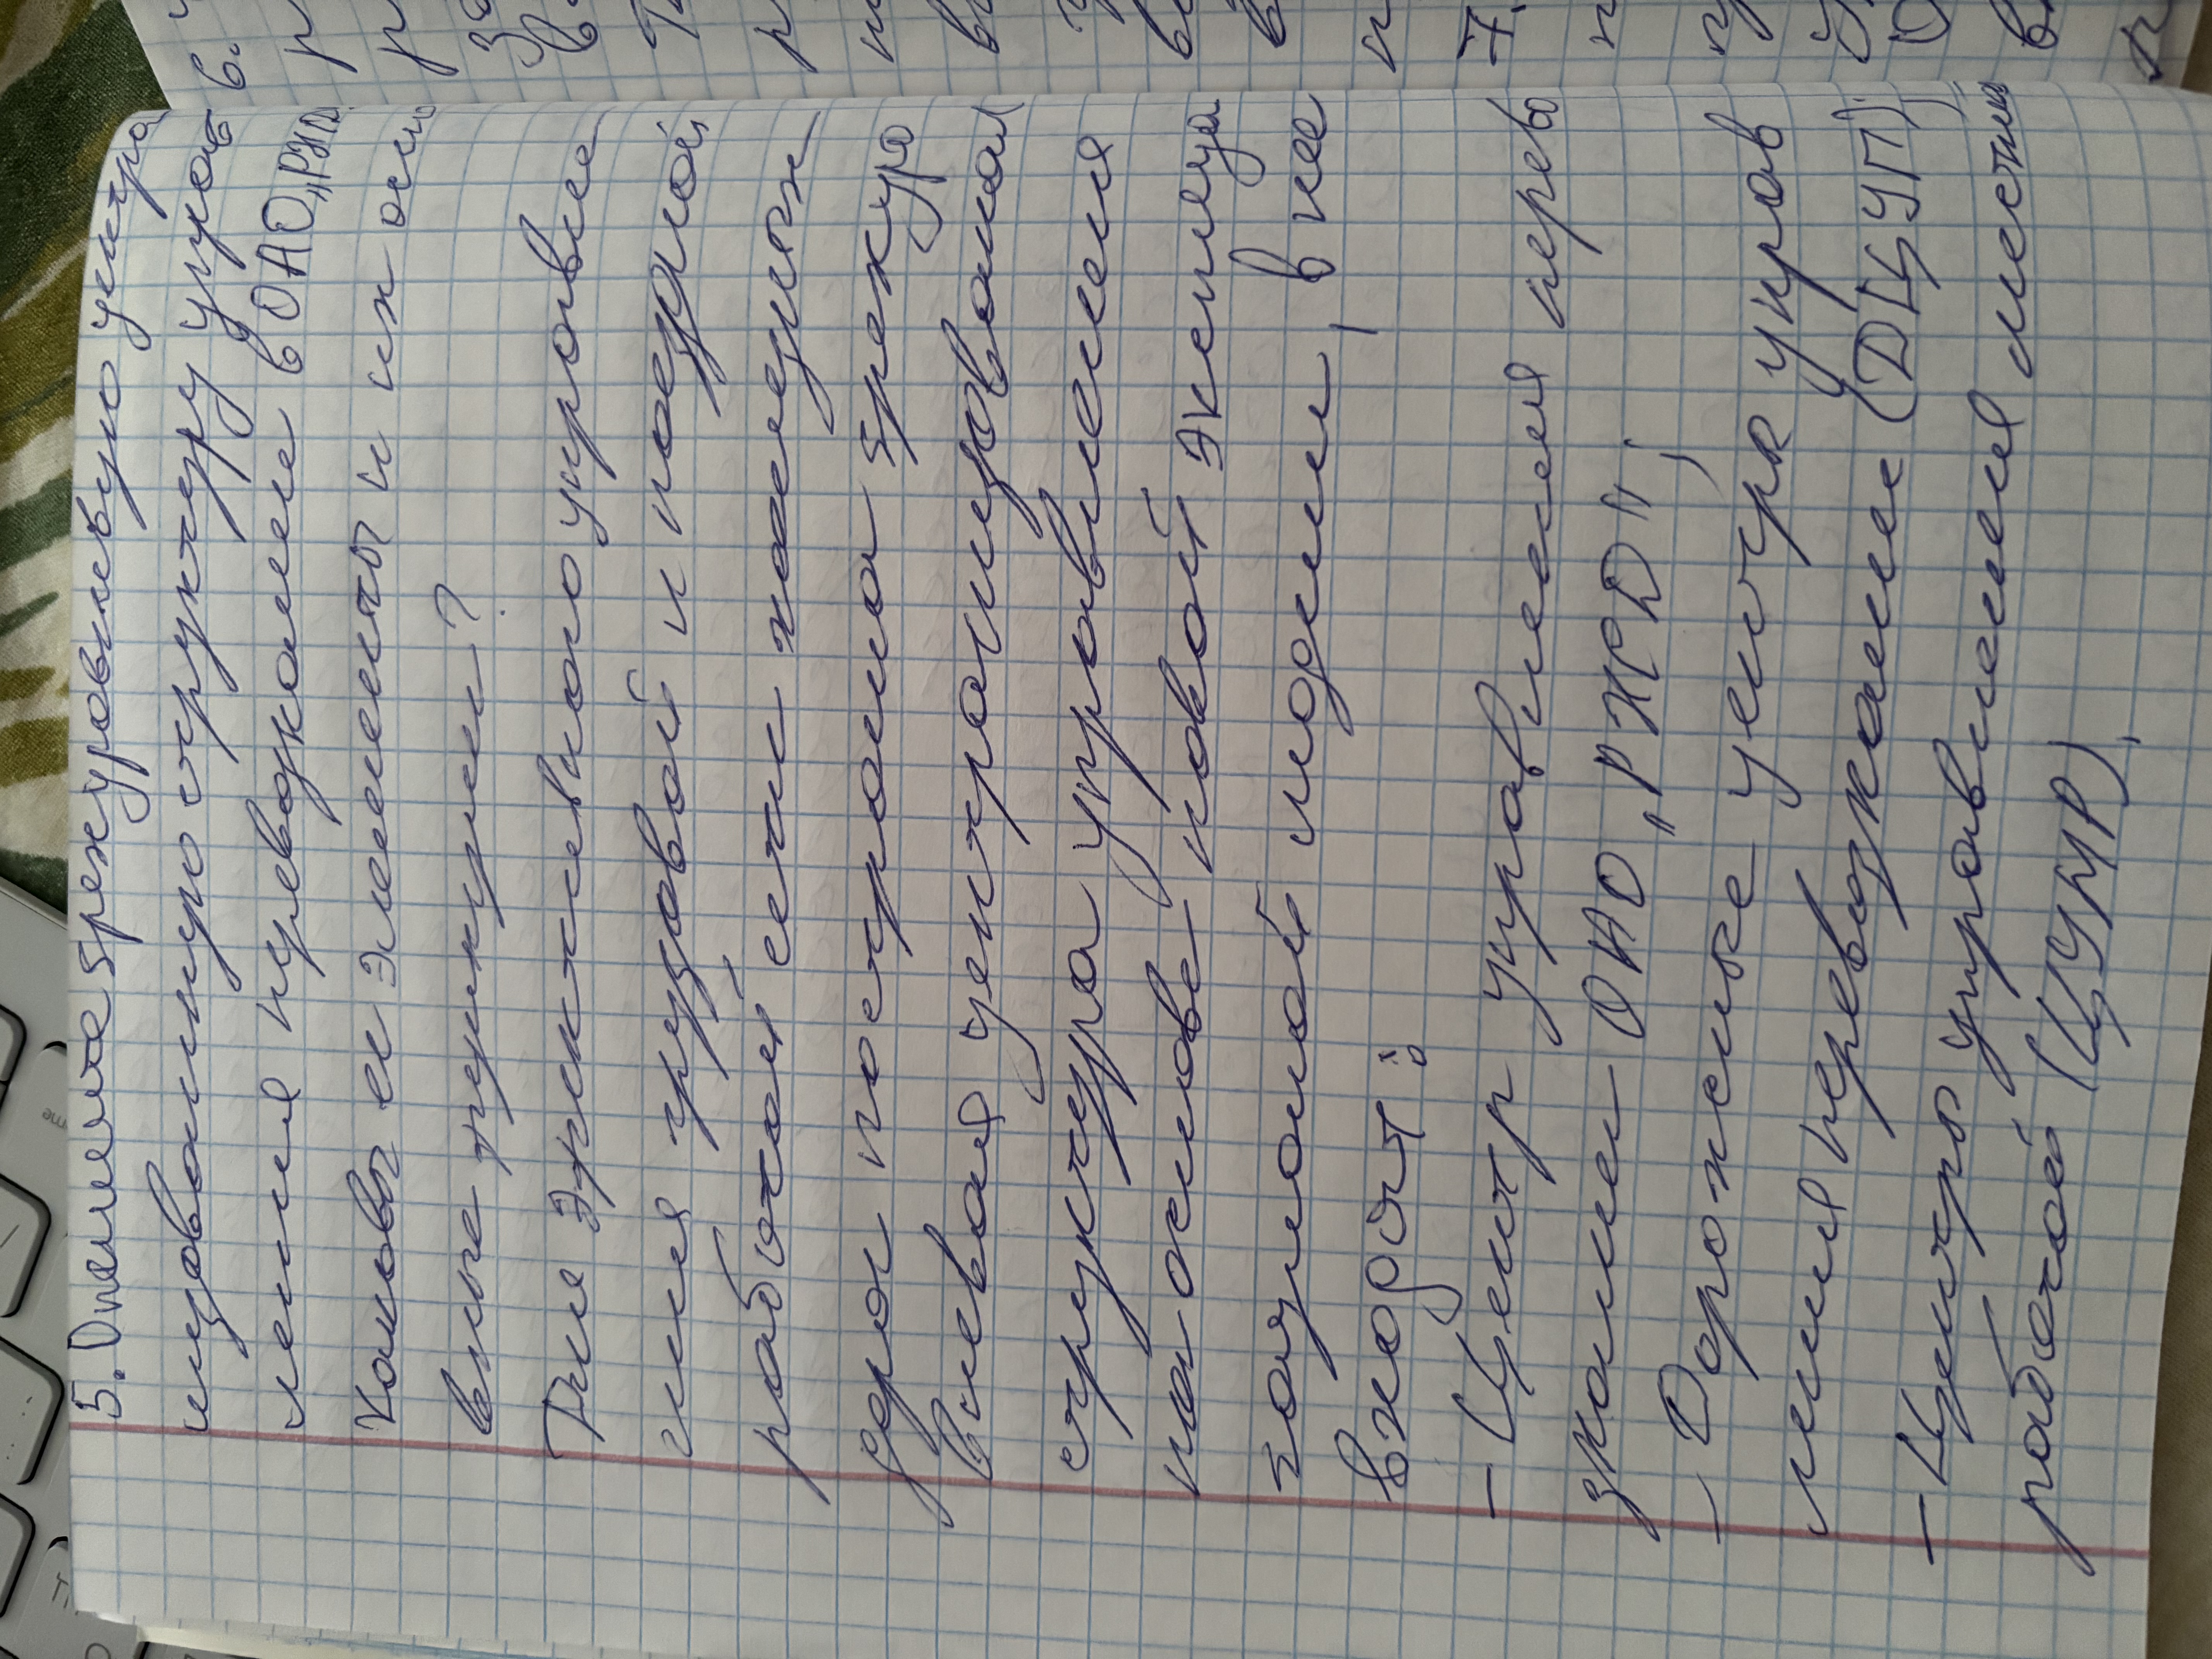 5. Опишите трехуровневую центра
лизованную структуру управ
ления перевозками в ОАО „РЖД".
Каковы ее элементы и их осно
вные функции?
Для эффективного управле
ния грузовой и поездной
работой сети железных
дорог построена трехуро
вневая централизованная
структура управления
на основе новой эксплуа
тационной модели, в нее
входят:
- Центр управления перево
зками ОАО „РЖД";
- Дорожные центры управ
ления перевозками (ДЦУП);
- Центры управления местной
работой (ЦУМР).
6.
7.